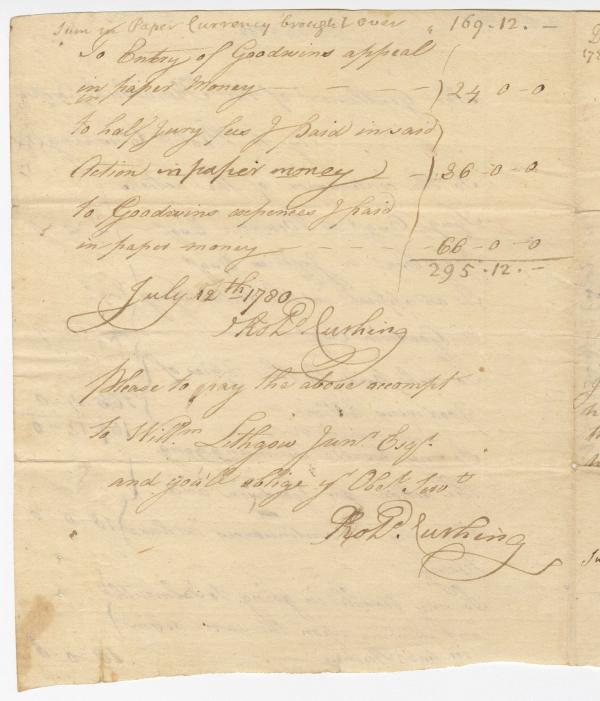 Sum in Paper Currency brought over " 169-12. -
To Entry of Goodwins appeal
in paper Money - - - - ) 24-0-0
to half Jury fees I paid in said
Action in paper money - ) 36-0-0
to Goodwins expences I paid
in paper money - - - - - 66-0-0
295-12.-
July 12th 1780
Robd Cushing
Please to pay the above accompt
To Willm Lithgow Junr Esqr.
and you'll oblige yr Obet. Servt
Robd. Cushing